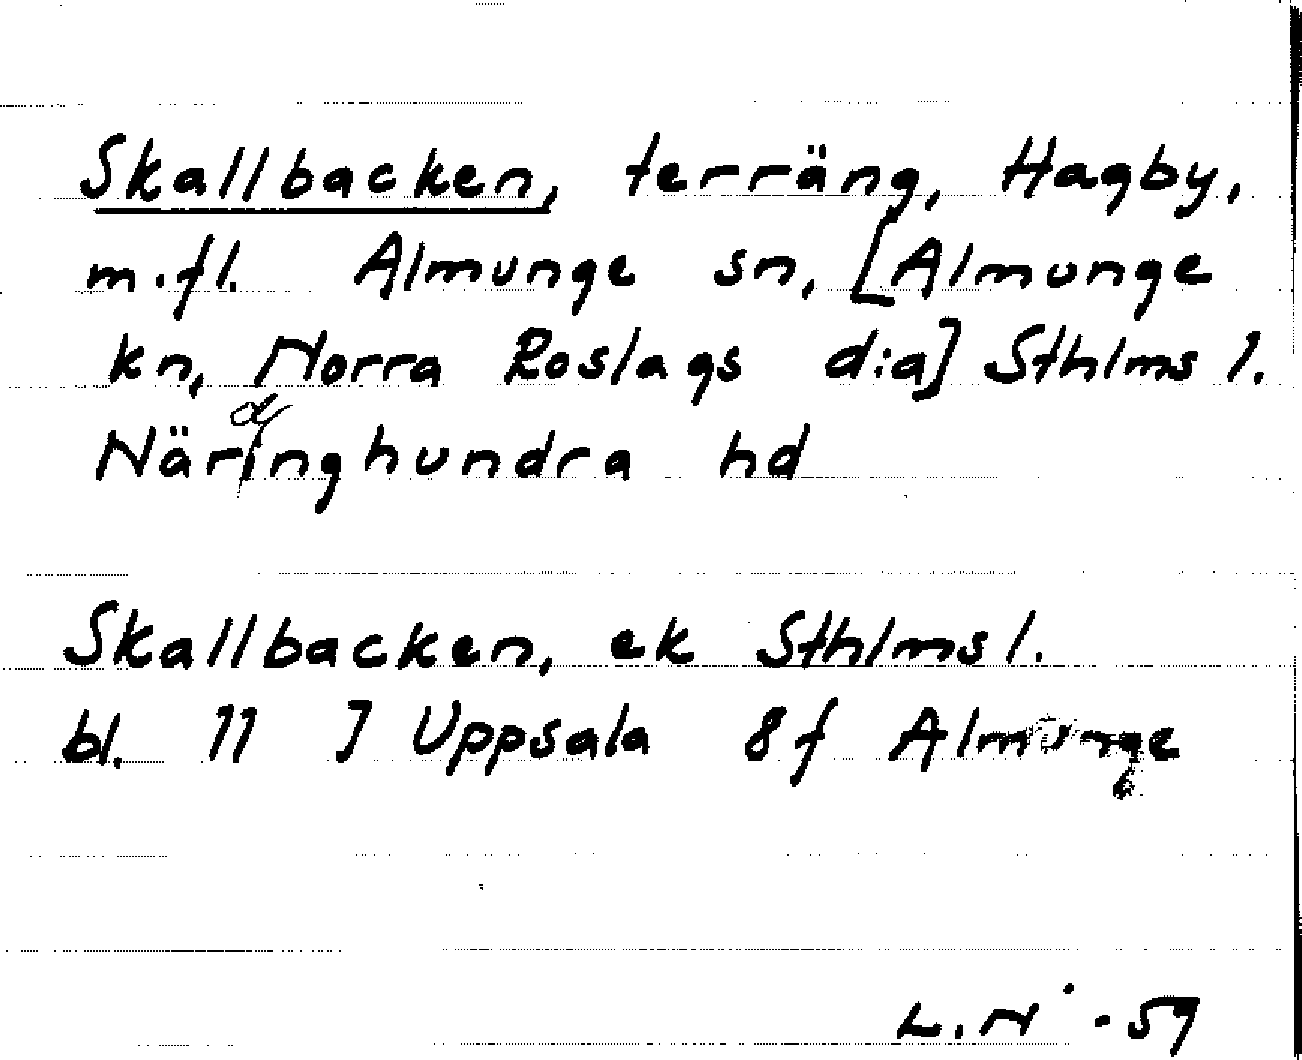 Skallbacken, terräng, Hagby,
m.fl. Almunge sn, [Almunge
kn, Norra Roslags dia] Sthlms l.
Närdinghundra hd
Skallbacken, ek Sthlms l.
bl. 11 I Uppsala 8f Almunge
L.N. -59